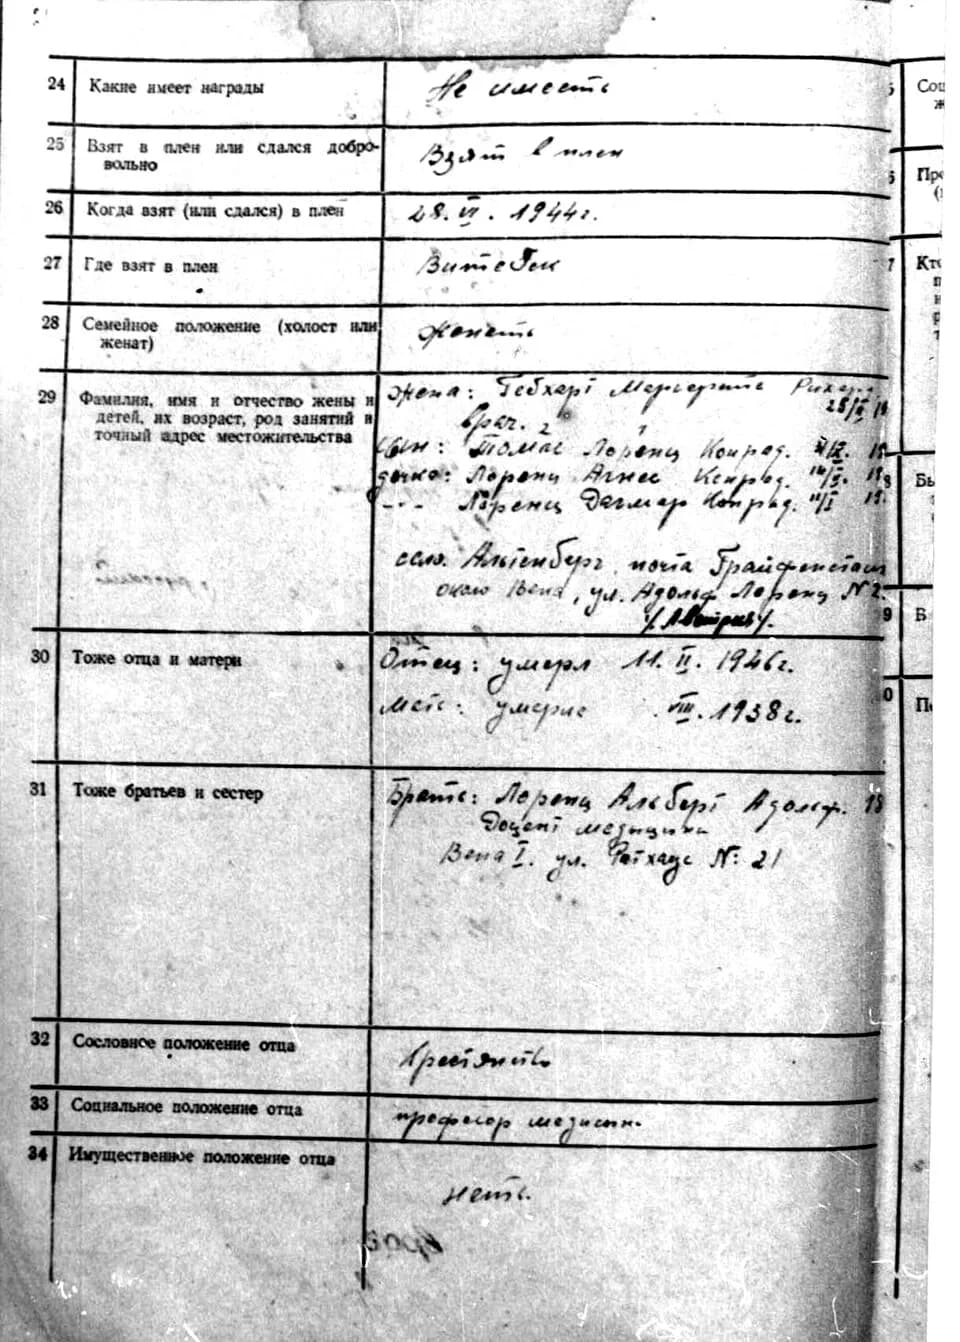 24 Какие имеет награды Не иместь
25 Взят в плен или сдался добро-
вольно Взят в плен
26 Когда взят (или сдался) в плен 28. VI. 1944г.
27 Где взят в плен Витебск
28 Семейное положение (холост или
женат) женать
29 Фамилия, имя и отчество жены и
детей, их возраст, род занятий и
точный адрес местожительства
Жена: Гебхарт Маргарете Рихард
врач.
сын: Томас Лоренц Конрад.
дочка: Лоренц Агнес Конрад.
Лоренц Дагмар Конрад.
село. Альтенберг, почта Грайфенстайн
около Вена, ул. Адольф Лоренц N 2.
/. Австрия /.
30 Тоже отца и матери Отец: умерл 11. II. 1946г.
Мать: умерла VIII. 1938г.
31 Тоже братьев и сестер Брать: Лоренц Альберт Адольф. 18
Доцент медицини
Вена I. ул. Ратхаус N: 21
32 Сословное положение отца Крестянство
33 Социальное положение отца професор медицин.
34 Имущественное положение отца
неть.
Соц
ж
Кто
Бы
В